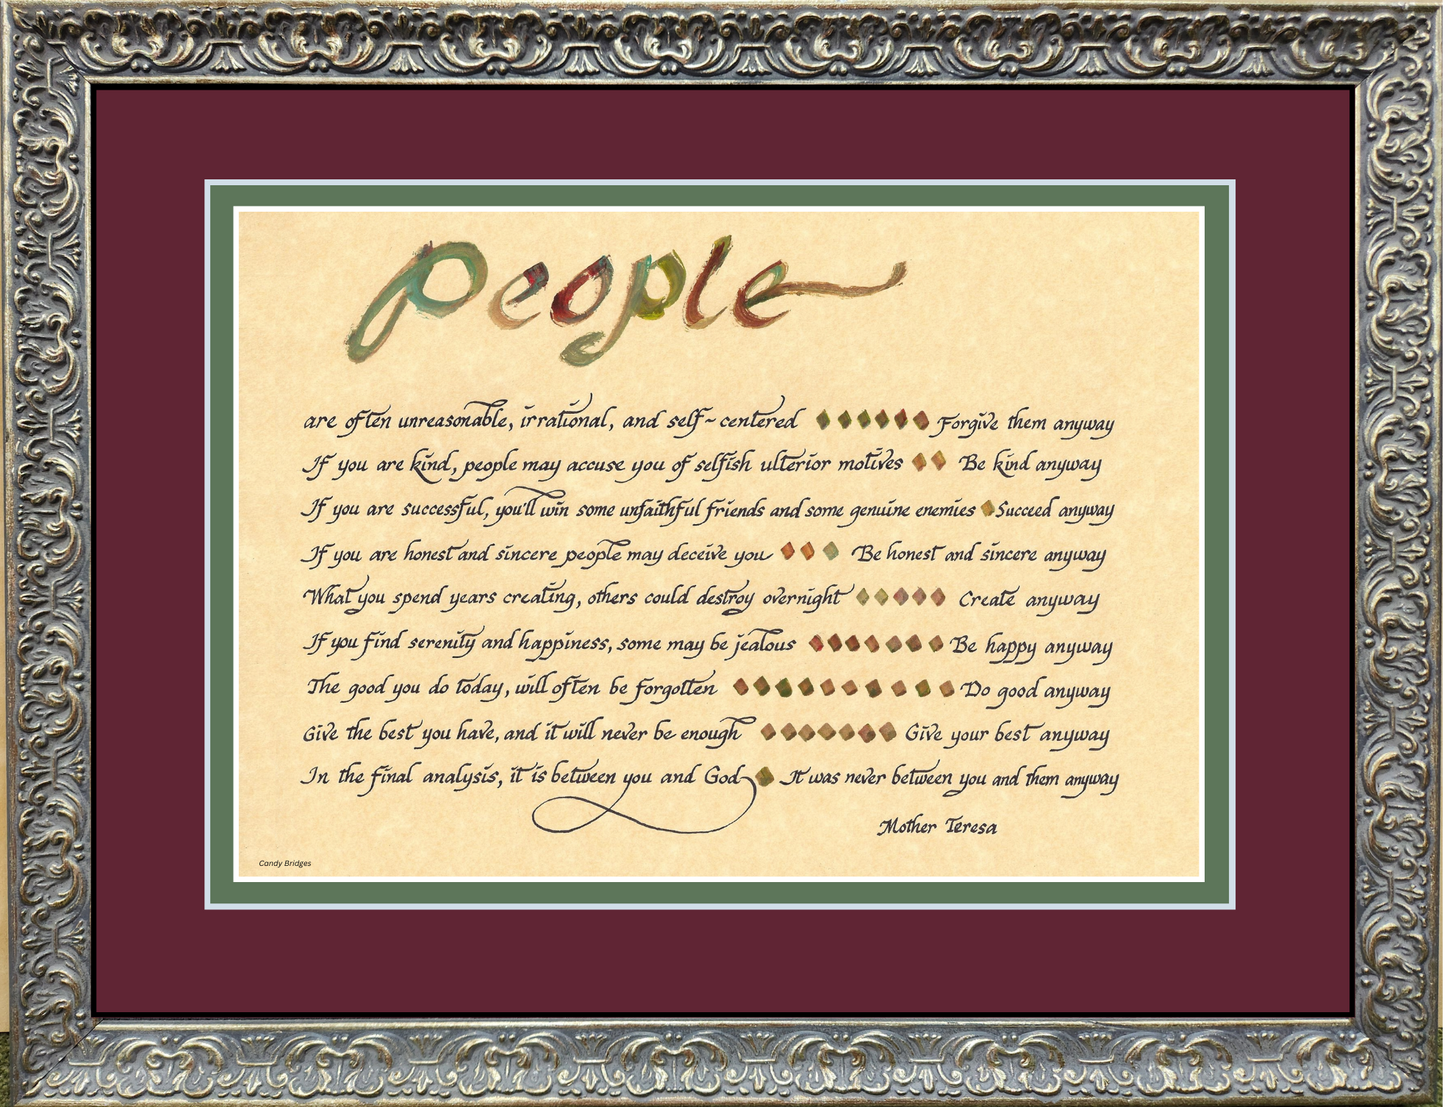 People
are often unreasonable, irrational, and self~centered Forgive them anyway
If you are kind, people may accuse you of selfish ulterior motives Be kind anyway
If you are successful, you'll win some unfaithful friends and some genuine enemies Succeed anyway
If you are honest and sincere people may deceive you Be honest and sincere anyway
What you spend years creating, others could destroy overnight Create anyway
If you find serenity and happiness, some may be jealous Be happy anyway
The good you do today, will often be forgotten Do good anyway
Give the best you have, and it will never be enough Give your best anyway
In the final analysis, it is between you and God It was never between you and them anyway
Mother Teresa
Candy Bridges